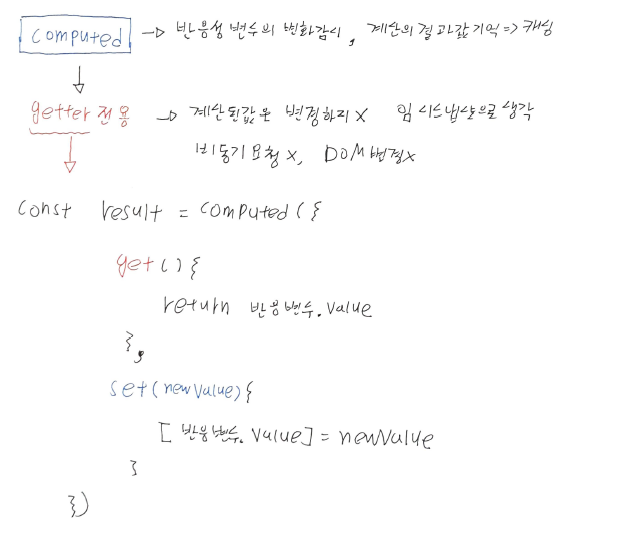 computed → 반응성 변수의 변화감시, 계산의 결과값 기억 => 캐싱
getter 전용 → 계산된값은 변경하리 X 임시스냅샷으로 생각
비동기 요청 X, DOM 변경 X
const result = computed({
get() {
return 반응변수.value
},
set(newValue) {
[반응변수.value] = newValue
}
})